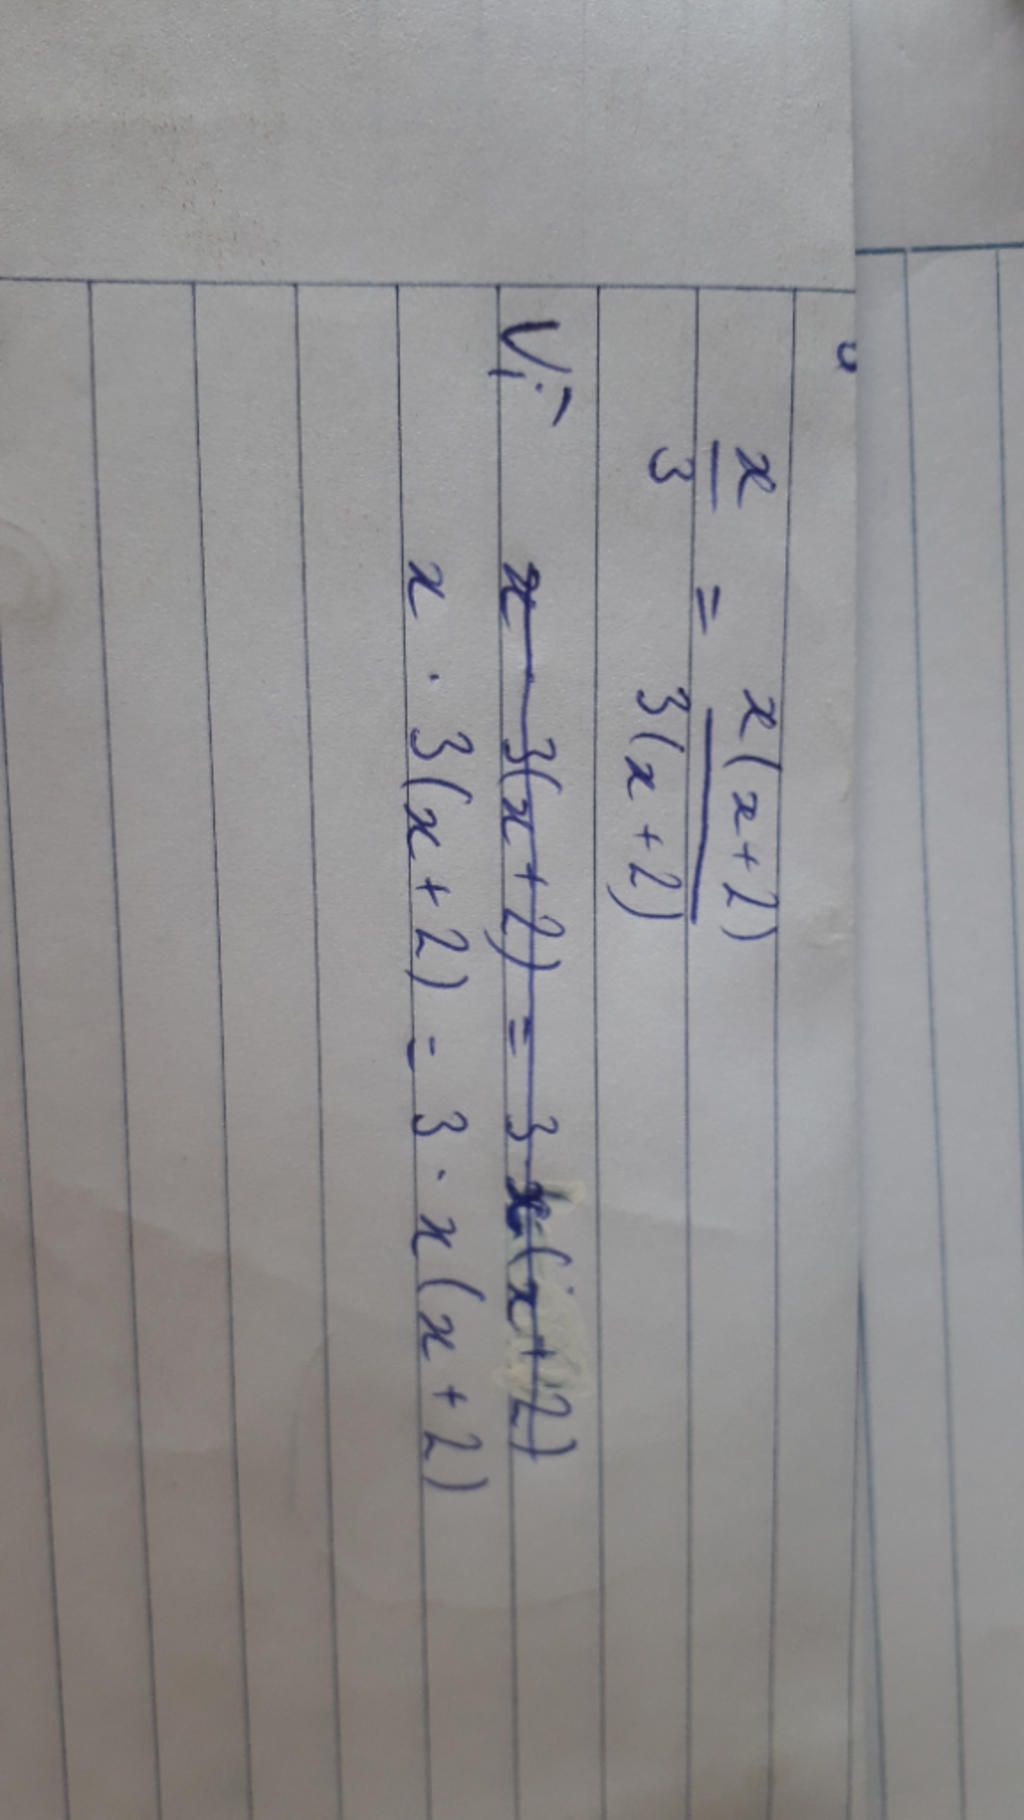 x/3 = x(x+2)/3(x+2)
Vì x · 3(x+2) = 3 · x(x+2)
x · 3(x+2) = 3 · x(x+2)